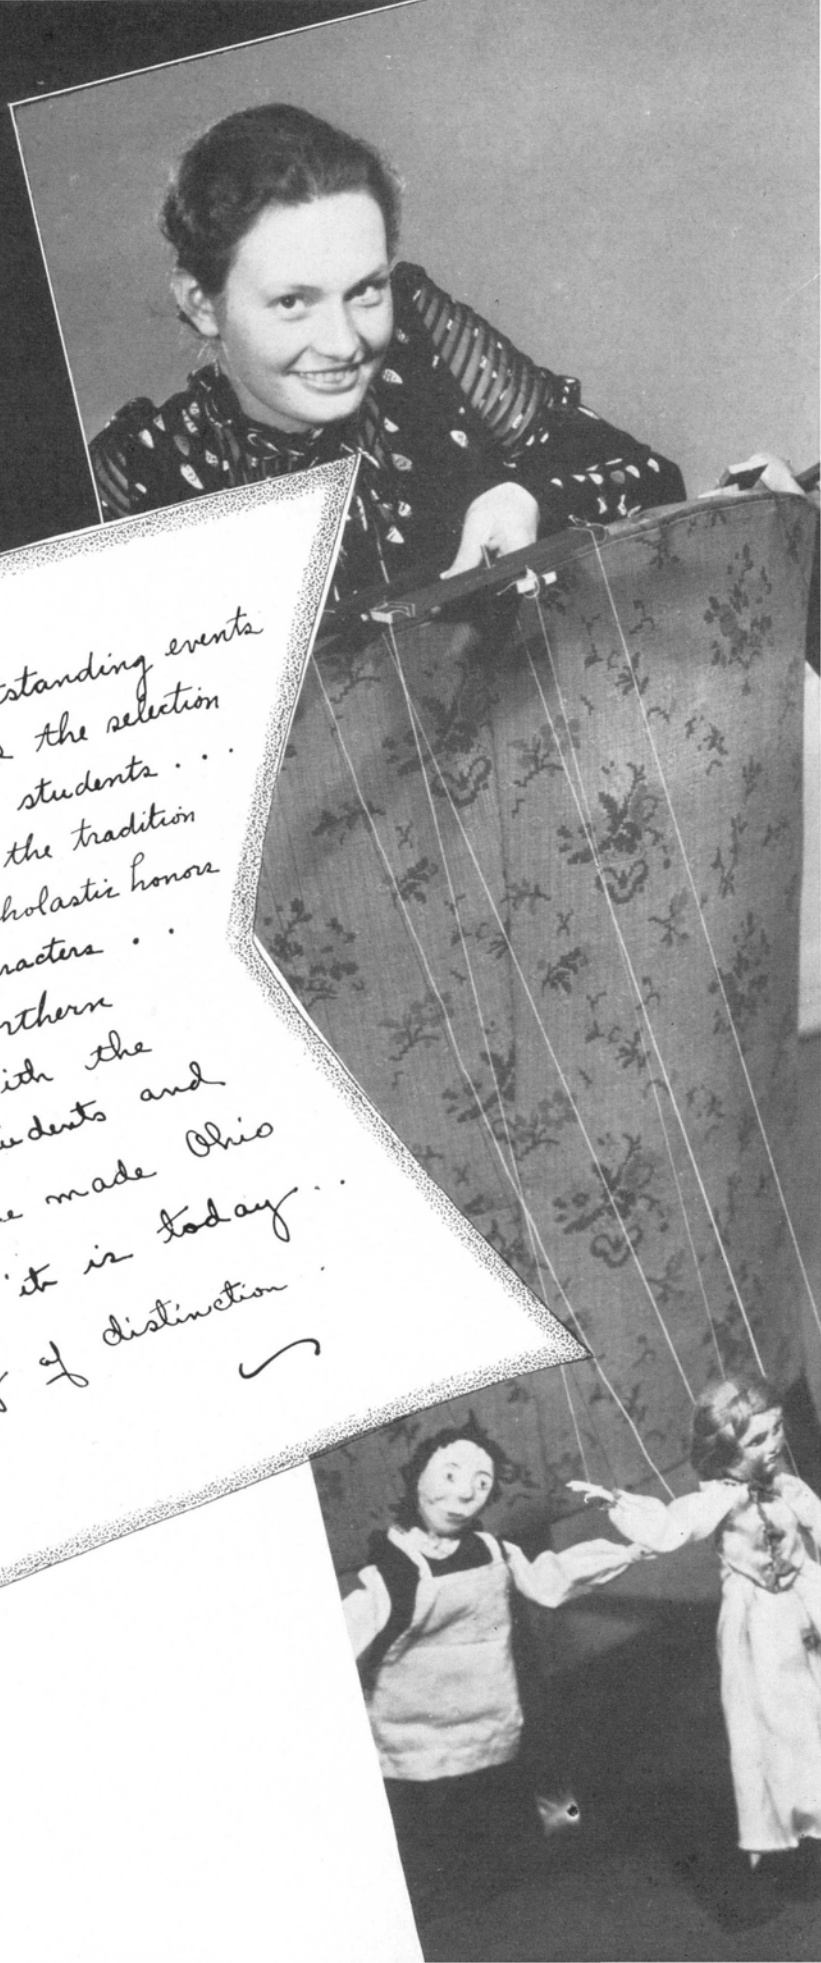 tstanding events
s the selection
students . . .
the tradition
holastic honors
racters . .
rthern
ith the
udents and
e made Ohio
it is today . .
y of distinction .